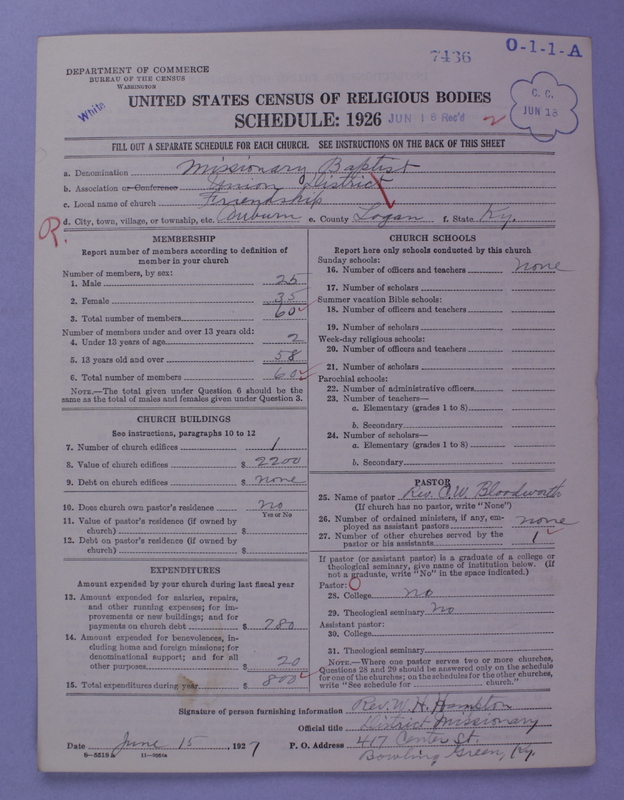 7436
O-1-1-A
DEPARTMENT OF COMMERCE
BUREAU OF THE CENSUS
WASHINGTON
White
UNITED STATES CENSUS OF RELIGIOUS BODIES
SCHEDULE: 1926
JUN 18 Rec'd
C. C.
JUN 18
FILL OUT A SEPARATE SCHEDULE FOR EACH CHURCH. SEE INSTRUCTIONS ON THE BACK OF THIS SHEET
a. Denomination Missionary Baptist
b. Association or Conference Union District
c. Local name of church Friendship
d. City, town, village, or township, etc. Auburn e. County Logan f. State Ky.
R.
MEMBERSHIP
Report number of members according to definition of
member in your church
Number of members, by sex:
1. Male 25
2. Female 35
3. Total number of members 60
Number of members under and over 13 years old:
4. Under 13 years of age 2
5. 13 years old and over 58
6. Total number of members 60
NOTE.—The total given under Question 6 should be the
same as the total of males and females given under Question 3.
CHURCH BUILDINGS
See instructions, paragraphs 10 to 12
7. Number of church edifices 1
8. Value of church edifices $ 2200
9. Debt on church edifices $ none
10. Does church own pastor's residence no
Yes or No
11. Value of pastor's residence (if owned by
church) $
12. Debt on pastor's residence (if owned by
church) $
EXPENDITURES
Amount expended by your church during last fiscal year
13. Amount expended for salaries, repairs,
and other running expenses; for im-
provements or new buildings; and for
payments on church debt $ 780
14. Amount expended for benevolences, in-
cluding home and foreign missions; for
denominational support; and for all
other purposes $ 20
15. Total expenditures during year $ 800
CHURCH SCHOOLS
Report here only schools conducted by this church
Sunday schools:
16. Number of officers and teachers none
17. Number of scholars
Summer vacation Bible schools:
18. Number of officers and teachers
19. Number of scholars
Week-day religious schools:
20. Number of officers and teachers
21. Number of scholars
Parochial schools:
22. Number of administrative officers
23. Number of teachers—
a. Elementary (grades 1 to 8)
b. Secondary
24. Number of scholars—
a. Elementary (grades 1 to 8)
b. Secondary
PASTOR
25. Name of pastor Rev. C. W. Bloodworth
(If church has no pastor, write "None")
26. Number of ordained ministers, if any, em-
ployed as assistant pastors none
27. Number of other churches served by the
pastor or his assistants 1
If pastor (or assistant pastor) is a graduate of a college or
theological seminary, give name of institution below. (If
not a graduate, write "No" in the space indicated.)
Pastor:
28. College no
29. Theological seminary no
Assistant pastor:
30. College
31. Theological seminary
NOTE.—Where one pastor serves two or more churches,
Questions 28 and 29 should be answered only on the schedule
for one of the churches; on the schedules for the other churches,
write "See schedule for church."
Signature of person furnishing information Rev. W. H. Hampton
Official title District Missionary
Date June 15, 1927 P. O. Address 417 Center St.
Bowling Green, Ky.
8-5518 a 11-9051a